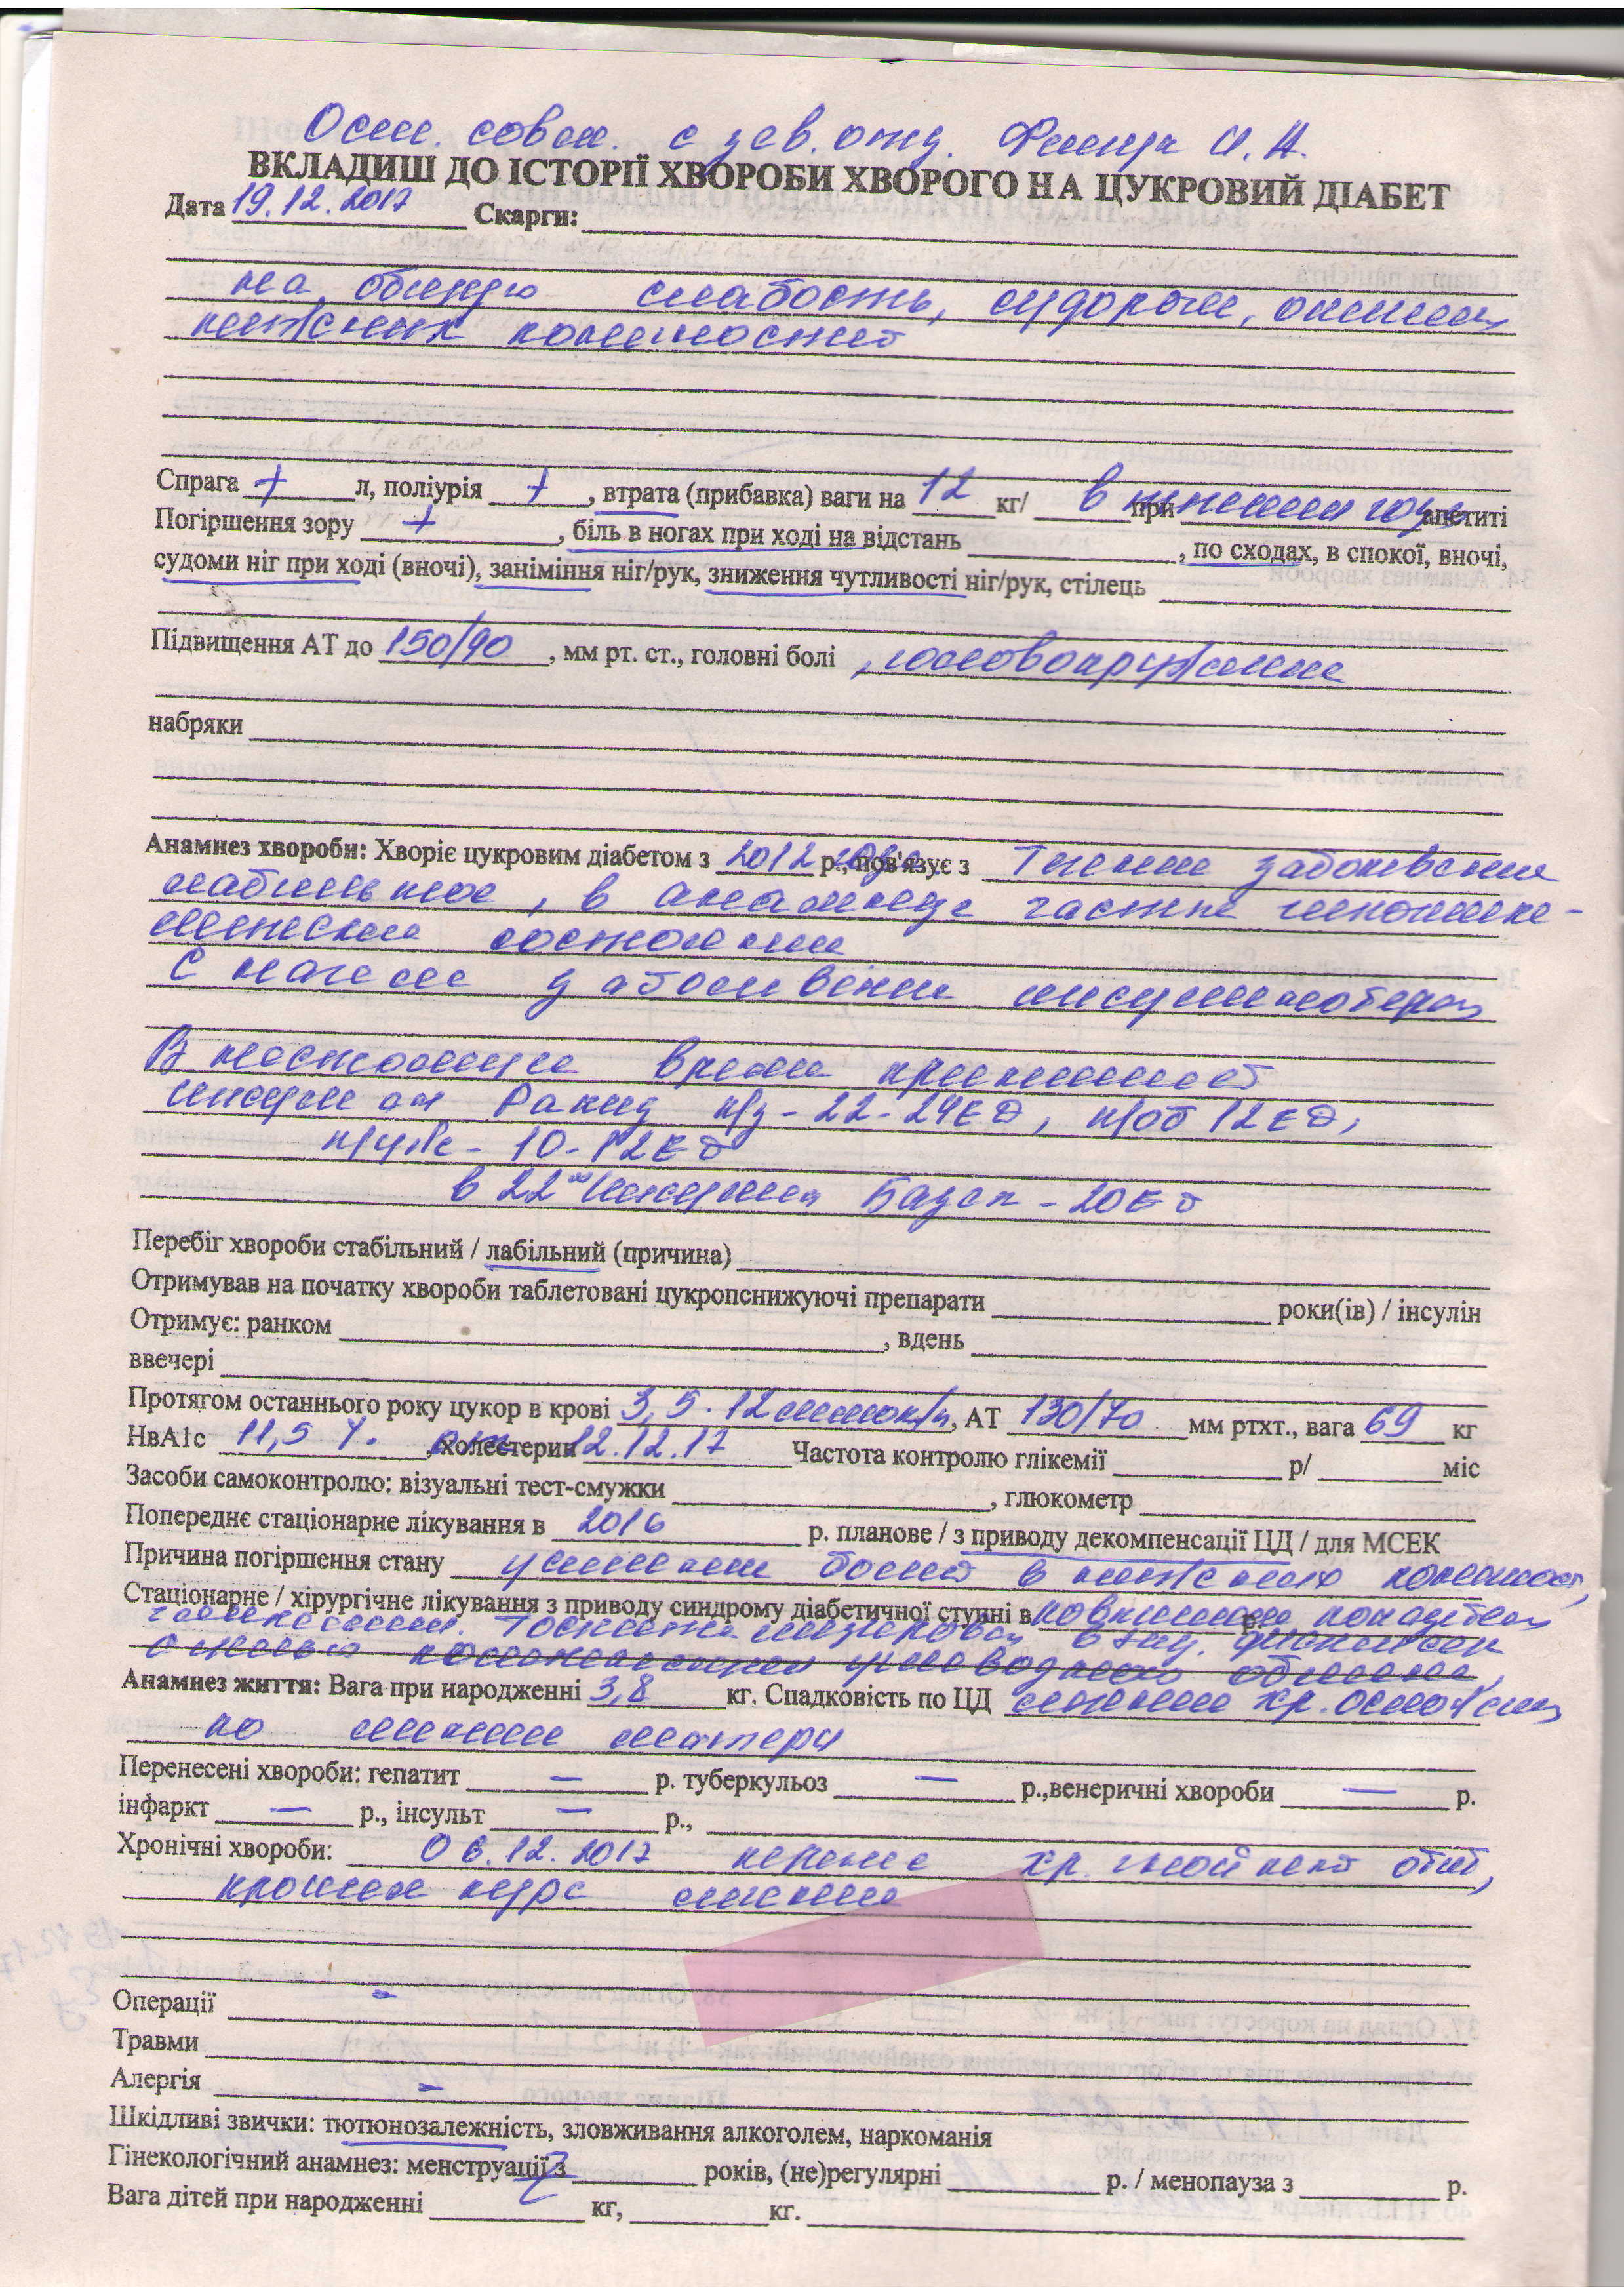 Осм. совм. с зав. отд. И. Н.
ВКЛАДИШ ДО ІСТОРІЇ ХВОРОБИ ХВОРОГО НА ЦУКРОВИЙ ДІАБЕТ
Дата 19.12.2017 Скарги:
на общую слабость, судороги, онемение
нижних конечностей
Спрага + л, поліурія + , втрата (прибавка) ваги на 12 кг/ в течении года при апетиті
Погіршення зору + , біль в ногах при ході на відстань , по сходах, в спокої, вночі,
судоми ніг при ході (вночі), заніміння ніг/рук, зниження чутливості ніг/рук, стілець
Підвищення АТ до 150/90 , мм рт. ст., головні болі , головокружение
набряки
Анамнез хвороби: Хворіє цукровим діабетом з 2012 р., пов'язує з Течение заболевания
лабильное, в анамнезе частые гипоглике-
мические состояния
С начала заболевания инсулинотерапия
В настоящее время принимает
инсуман Рапид п/з - 22-24ЕД, п/об 12ЕД,
п/уж - 10-12ЕД
в 22⁰⁰ Инсуман Базал - 20ЕД
Перебіг хвороби стабільний / лабільний (причина)
Отримував на початку хвороби таблетовані цукропснижуючі препарати роки(ів) / інсулін
Отримує: ранком , вдень
ввечері
Протягом останнього року цукор в крові 3,5-12 ммоль/л, АТ 130/70 мм ртхт., вага 69 кг
НвА1с 11,5 %. от , холестерин 12.12.17 Частота контролю глікемії р/ міс
Засоби самоконтролю: візуальні тест-смужки , глюкометр
Попереднє стаціонарне лікування в 2016 р. планове / з приводу декомпенсації ЦД / для МСЕК
Причина погіршення стану усиление болей в нижних конечност,
Стаціонарне / хірургічне лікування з приводу синдрому діабетичної ступні в р.
гликемии. Госпитализирован в энд. диспансер
с целью компенсации углеводного обмена,
Анамнез життя: Вага при народженні 3,8 кг. Спадковість по ЦД
по линии матери
Перенесені хвороби: гепатит — р. туберкульоз — р.,венеричні хвороби — р.
інфаркт — р., інсульт — р.,
Хронічні хвороби: 06.12.2017 перенес хр. гнойный отит,
прошел курс лечения
Операції -
Травми
Алергія -
Шкідливі звички: тютюнозалежність, зловживання алкоголем, наркоманія
Гінекологічний анамнез: менструації з років, (не)регулярні р. / менопауза з р.
Вага дітей при народженні кг, кг.